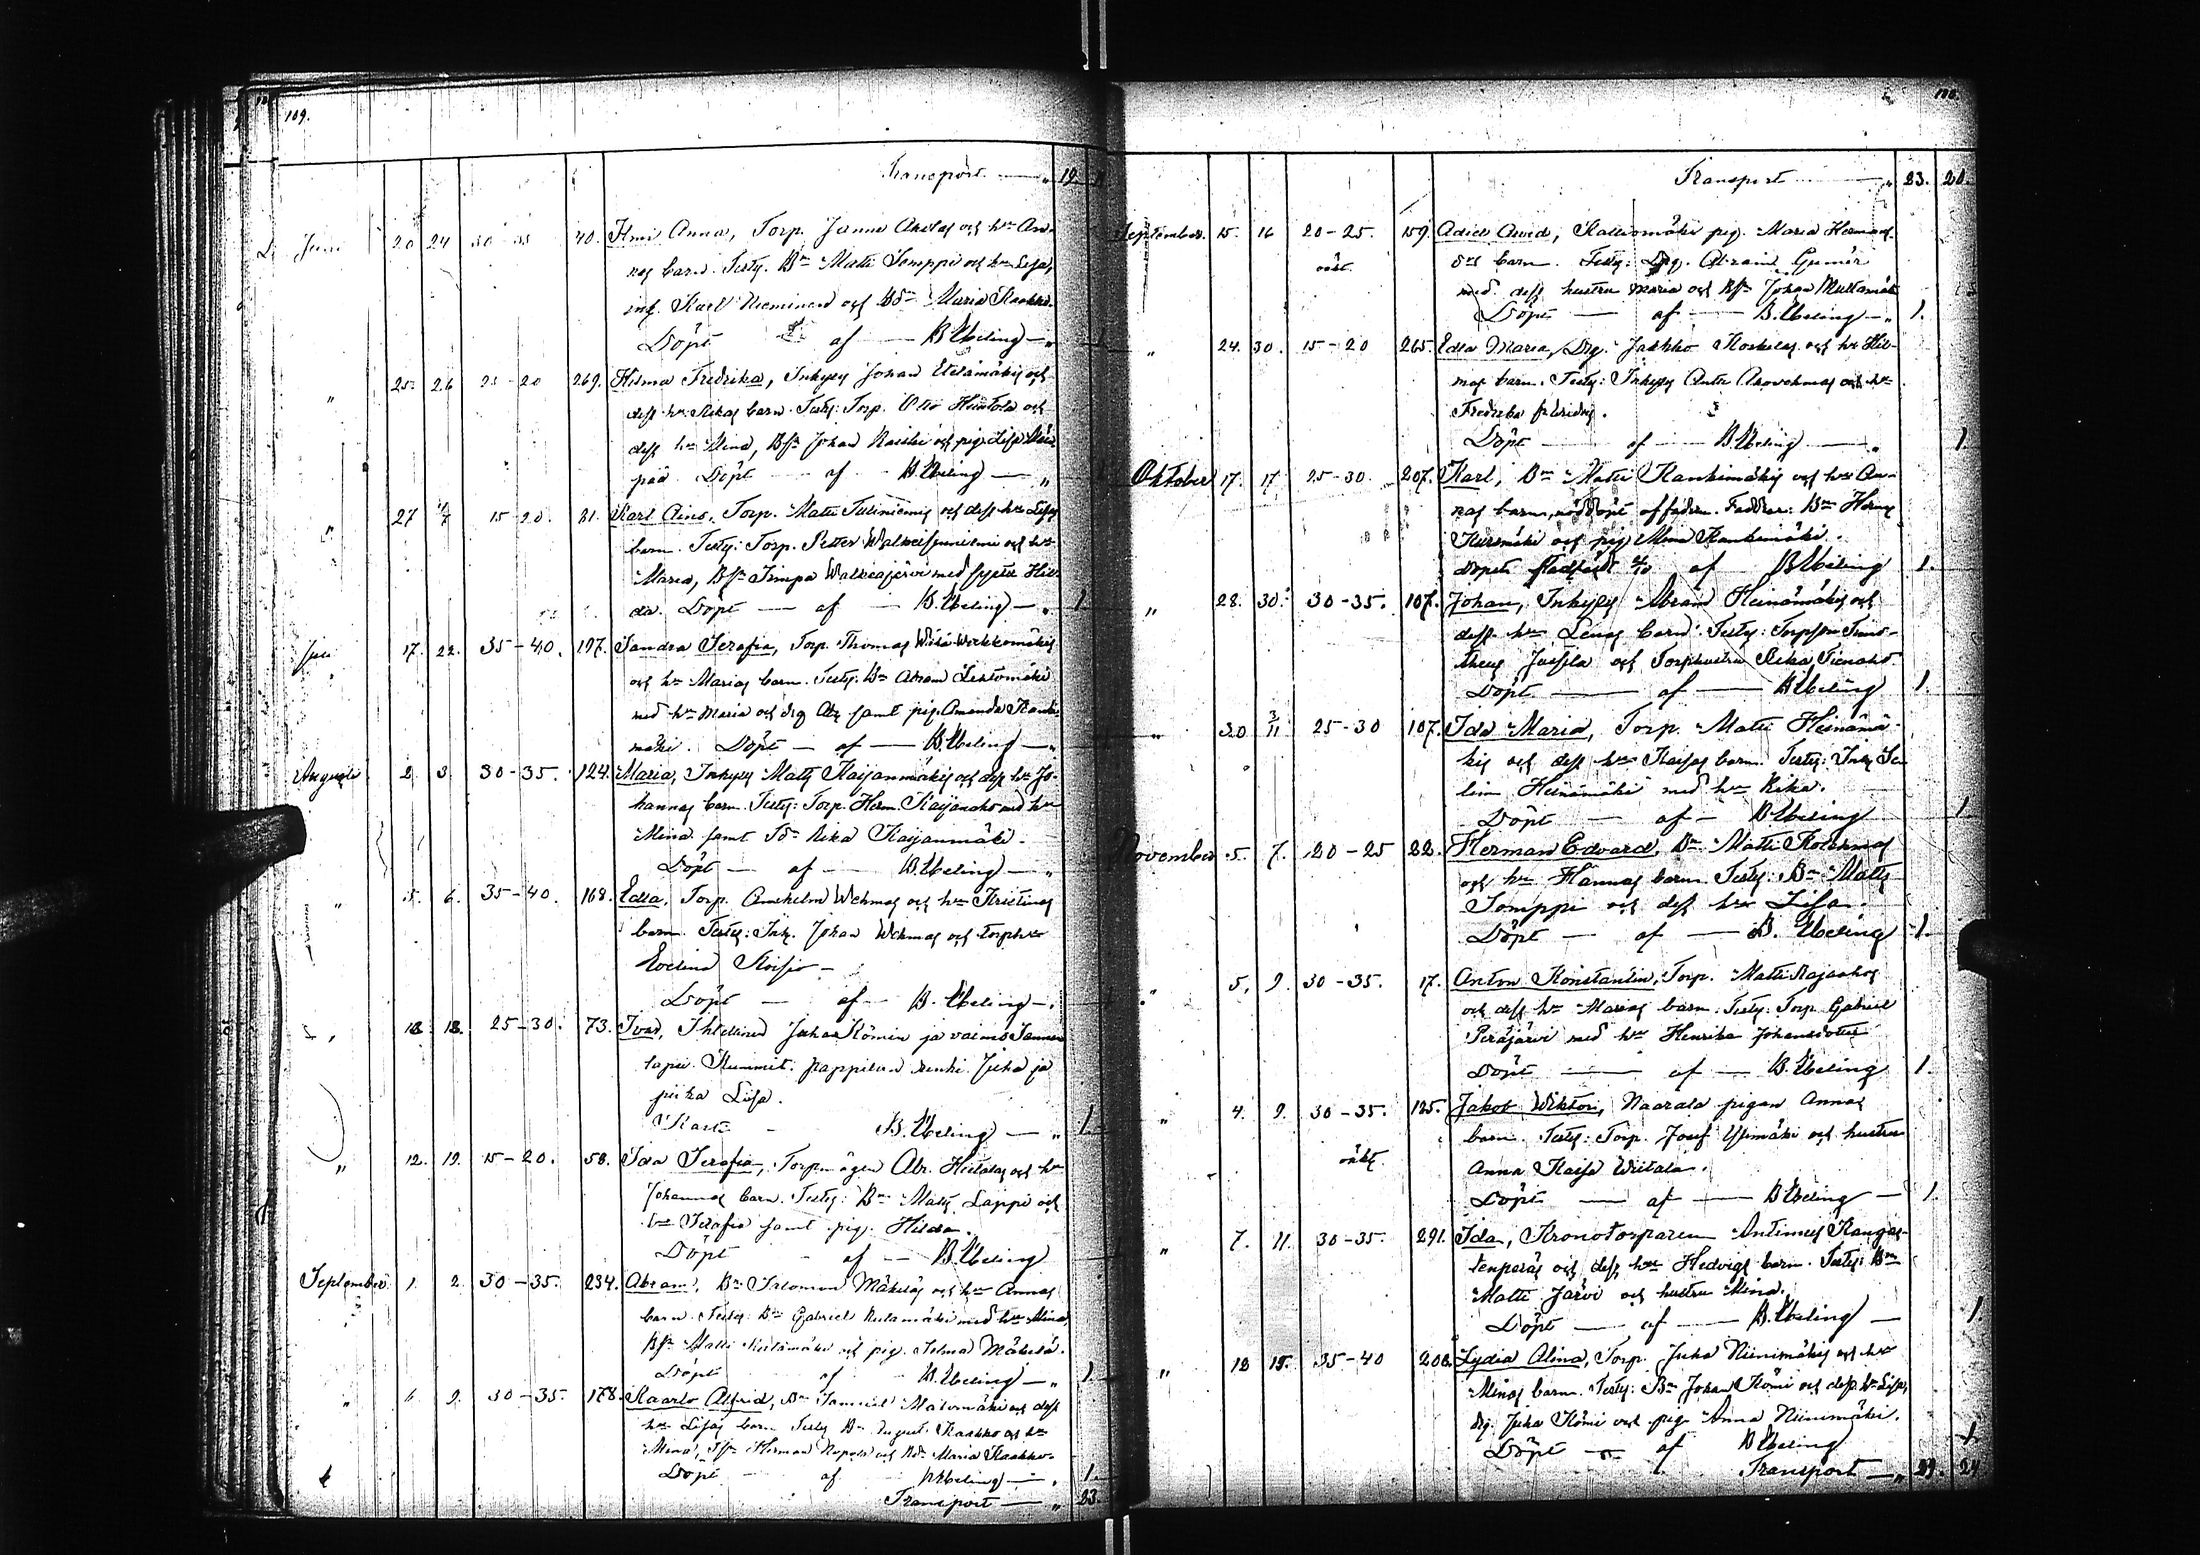 109.
Transport — „ 19
Juni 20 24 30-35 40. Hmi Anna, Torp. Janne Aholas och hu An-
nas barn. Testg. Bn Matti Somppi och hu Lisa,
ing. Karl Nieminen och Bdr Maria Raakko.
Döpt af — B. Ebeling — „
„ 25 26 269. Hilma Fredrika, Inhyses Johan Etelämäkis och
dess hu Rikas barn. Testg: Torp. Otto Hietala och
dess hu Mina, Bsn Johan och pig. Lisa
pää. Döpt — af — B. Ebeling — „
„ 27 1/7 15-20. 31. Karl Aino, Torp. Matti och dess hu Lisas
barn. Testg: Torp. Petter och hu
Maria, Bsn Walkeajärvi med syster Hil-
da. Döpt — af — B. Ebeling — „ 1.
Juli 17. 22. 35-40. 197. Sandra Serafia, Torp. Thomas
och hu Marias barn. Testg. Bn Abram Lehtomäki
med hu Maria och drg samt pig. Amanda Kanki-
mäki. Döpt — af — B. Ebeling — „
Augusti 2 3 30-35. 124. Maria, Inhyses Matts Kaijanmäkis och dess hu Jo-
hannas barn. Testg: Torp. Herm. Kaijanaho med hu
Mina samt Rika Kaijanmäki.
Döpt — af — B. Ebeling — „
„ 5. 6. 35-40. 168. Edla, Torp. Amshelm Wehmas och hu Kristinas
barn. Testg: Inh. Johan Wehmas och torphu
Evelina
Döpt — af — B. Ebeling — „
„ 18. 18. 25-30. 73. Ivar, Itsellisen Juhan Kömin ja vaimo Sannan
lapsi. Kummit: pappilan renki Juha ja
piika Lisa.
Kasti — B. Ebeling — „ 1.
„ 12. 19. 15-20. 58. Ida Serafia, Torp. ägen Abr. Hietalas och hu
Johannas barn. Testg: Bn Matts Lappi och
hu Serafia samt pig. Hilda.
Döpt — af — B. Ebeling
September 1. 2. 30-35. 234. Abram, Bn Salomon Mäkeläs och hu Annas
barn. Testg: Bn Gabriel med hu Mina,
Bsn Matti och pig. Selma Mäkelä.
Döpt af B. Ebeling — „ 1.
„ 6 9. 30-35. 178. Kaarlo Alfrid, Bn Samuel och dess
hu Lisas barn. Testg Bn August Raakko och hu
Mina, Herman och Bdr Maria Raakko.
Döpt — af — B. Ebeling — „ 1.
Transport — „ 23.
Transport — „ 23. 20.
September. 15. 16 20-25. 159. Maria Herman-
drs barn. Testg: Drg. Abram
med dess hustru Maria och Bsn Johan Multamäki
oäkt. Döpt — af — B. Ebeling — „ 1.
„ 24. 30. 15-20 265. Edla Maria, Drg. Jaakko Koskelas och hu Hil-
mas barn. Testg: Inhyses Antti och hu
Fredrika
Döpt — af — B. Ebeling — „ 1
Oktober 17. 17 25-30. 207. Karl, Bn Matts Kankimäkis och hu An-
nas barn, nöddöpt af fadren. Faddrar: Bn Herm
och pig Mina Kankimäki.
Dopet stadfäst af B. Ebeling 1.
„ 28. 30. 30-35. 107. Johan, Inhyses Abram Heinämäkis och
dess hu Lenas barn. Testg: Torpson Timo-
theus Jussila och Torphustru Rika
Döpt — af — B. Ebeling 1.
„ 30 3/11 25-30 107. Ida Maria, Torp. Matti Heinämä-
kis och dess hu Kaisas barn. Testg: Inh Se-
lim Heinämäki med hu Rika.
Döpt — af — B. Ebeling 1.
November 5. 7. 20-25 22. Herman Edvard, Bn Matti
och hu Hannas barn Testg: Bn Matts
Somppi och dess hu Lisa.
Döpt — af — B. Ebeling 1.
„ 5. 9. 30-35. 17. Anton Konstantin, Torp. Matti Rajaahos
och dess hu Marias barn. Testg: Torp Gabriel
Peräjärvi med hu Henrika Johansdotter
Döpt — af — B. Ebeling 1.
„ 4. 9. 30-35. 125. Jakob Wiktor, Naarala pigan Annas
barn. Testg: Torp. Josef Ylimäki och hustru
oäkt. Anna Kaisa Wiitala.
Döpt — af — B. Ebeling — 1.
„ 7. 11. 30-35. 291. Ida, Kronotorparen Antimes Kangas-
tenperäs och dess hu Hedvigs barn. Testg: Bn
Matti Järvi och hustru Mina.
Döpt — af — B. Ebeling — 1.
„ 12 15. 35-40 208. Lydia Alina, Torp. Juha Niinimäkis och hu
Minas barn. Testg: Bn Johan Kömi och dess hu Lisa,
drg. Juha Kömi och pig. Anna Niinimäki.
Döpt — af B. Ebeling 1
Transport — „ 29. 24